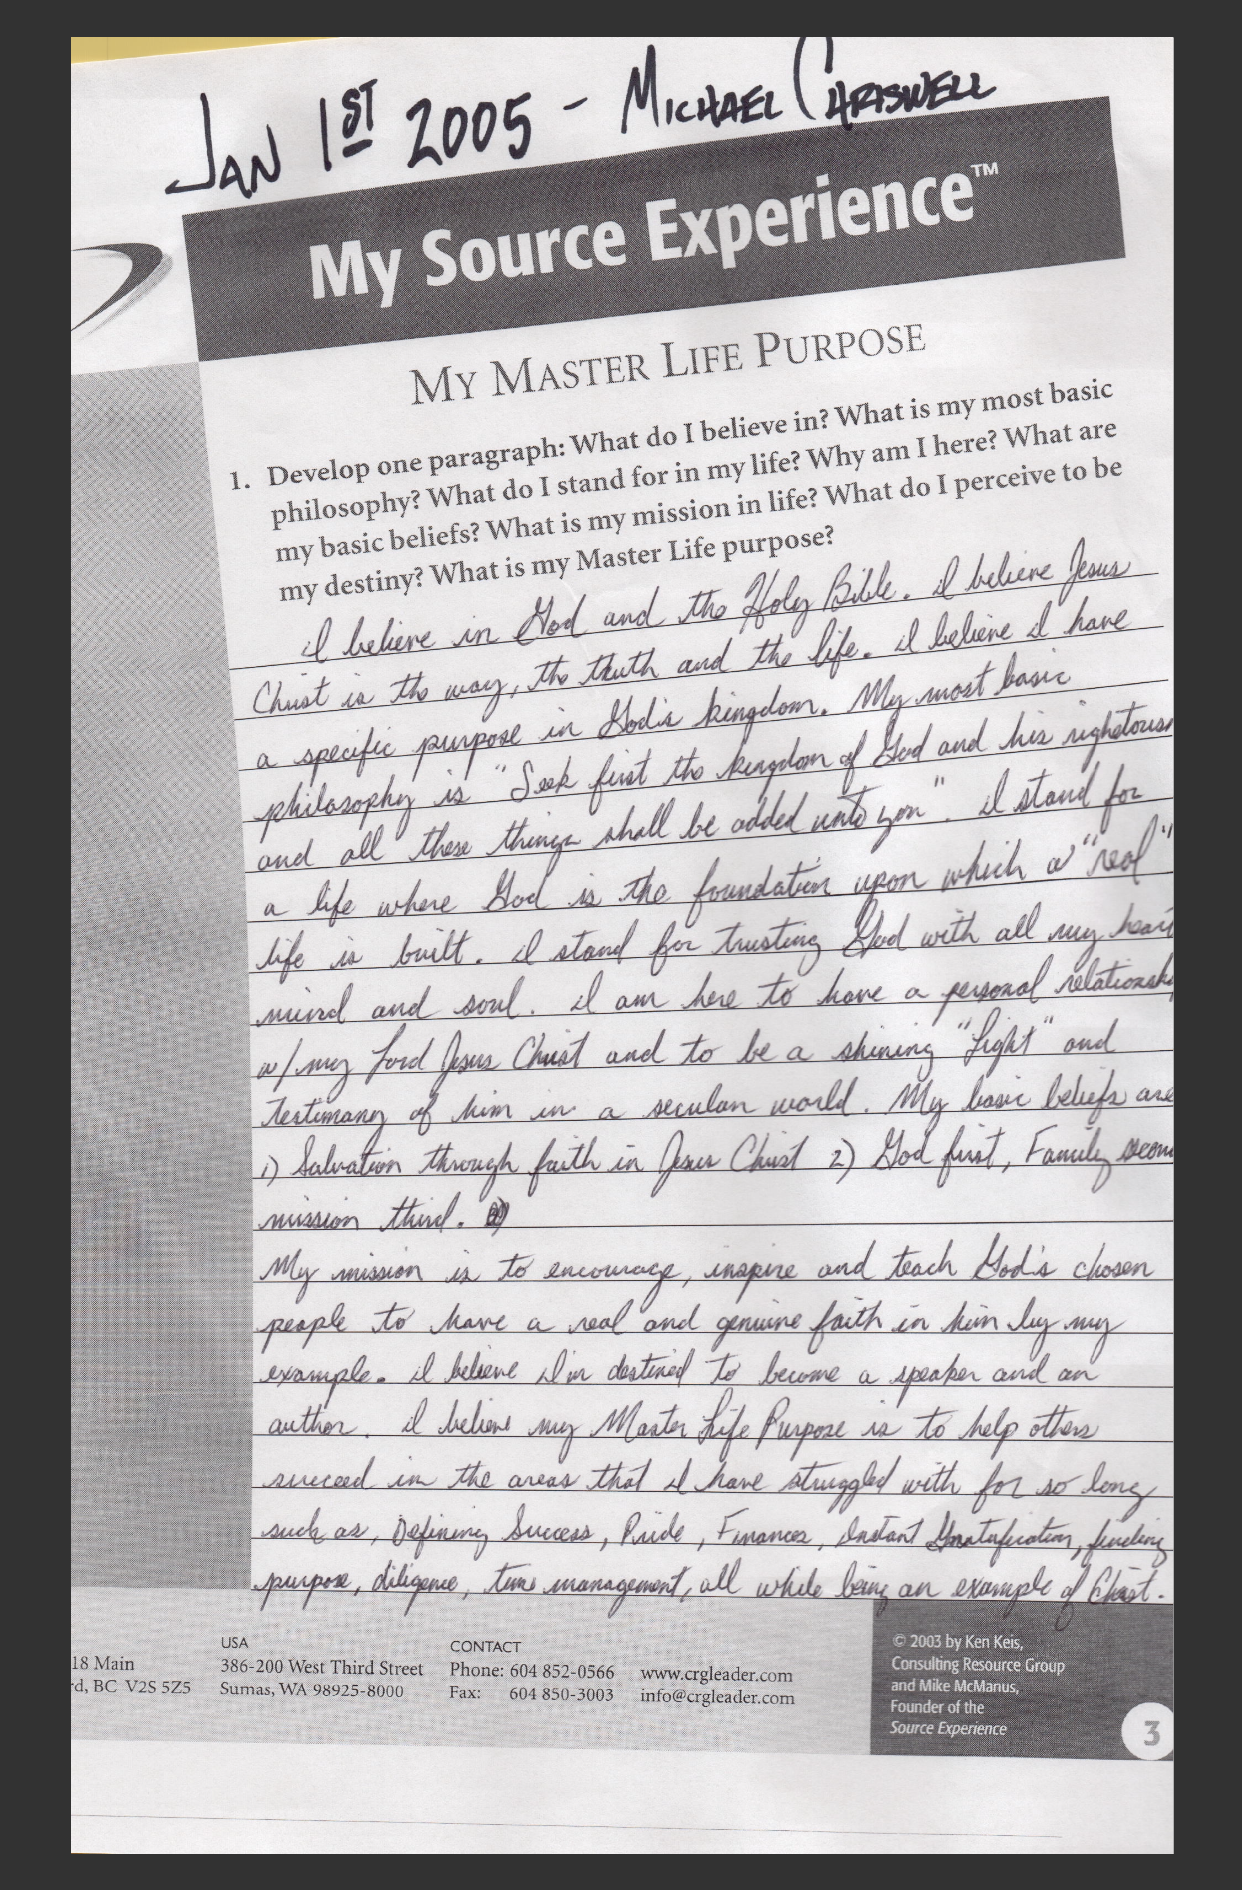 JAN 1ST 2005 - MICHAEL CHRISWELL
My Source Experience™
MY MASTER LIFE PURPOSE
1. Develop one paragraph: What do I believe in? What is my most basic
philosophy? What do I stand for in my life? Why am I here? What are
my basic beliefs? What is my mission in life? What do I perceive to be
my destiny? What is my Master Life purpose?
I believe in God and the Holy Bible. I believe Jesus
Christ is the way, the truth and the life. I believe I have
a specific purpose in God's kingdom. My most basic
philosophy is "Seek first the kingdom of God and his rightousn
and all these things shall be added unto you". I stand for
a life where God is the foundation upon which a "real"
life is built. I stand for trusting God with all my heart
mind and soul. I am here to have a personal relationship
w/ my Lord Jesus Christ and to be a shining "Light" and
Testimony of him in a secular world. My basic beliefs are
1) Salvation through faith in Jesus Christ 2) God first, Family secon
mission third.
My mission is to encourage, inspire and teach God's chosen
people to have a real and genuine faith in him by my
example. I believe I'm destined to become a speaker and an
author. I believe my Master Life Purpose is to help others
succeed in the areas that I have struggled with for so long
such as, Defining Success, Pride, Finances, Instant Gratification, finding
purpose, diligence, time management, all while being an example of Christ.
18 Main
rd, BC V2S 5Z5
USA
386-200 West Third Street
Sumas, WA 98925-8000
CONTACT
Phone: 604 852-0566 www.crgleader.com
Fax: 604 850-3003 info@crgleader.com
© 2003 by Ken Keis,
Consulting Resource Group
and Mike McManus,
Founder of the
Source Experience
3